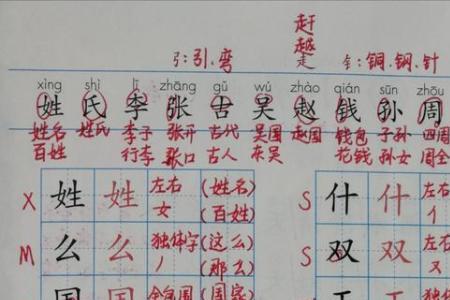 赶
越
弓:引.弯 走 钅:铜.钢.针
xìng shì lǐ zhāng gǔ wú zhào qián sūn zhōu
姓 氏 李 张 古 吴 赵 钱 孙 周
姓名 姓氏 李子 张开 古代 吴国 赵国 钱包 子孙 四周
百姓 行李 张口 古人 东吴 花钱 孙女 周全
X 姓 姓 左右 (姓名) S 什 什 左右
女 (百姓) 亻
M 么 么 独体字 (这么) S 双 双 左右
丿 (那么) 又
国 国 全包围 (国家)